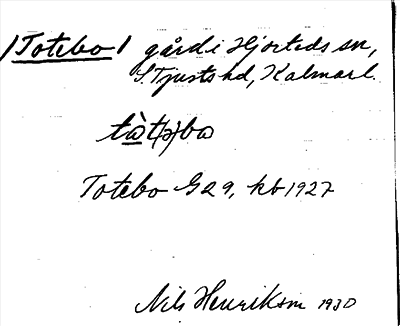 /Totebo/ gård i Hjorteds sn,
S. Tjusts hd, Kalmarl.
tàt(ə)bω
Totebo G29, kb 1927
Nils Henrikson 1930